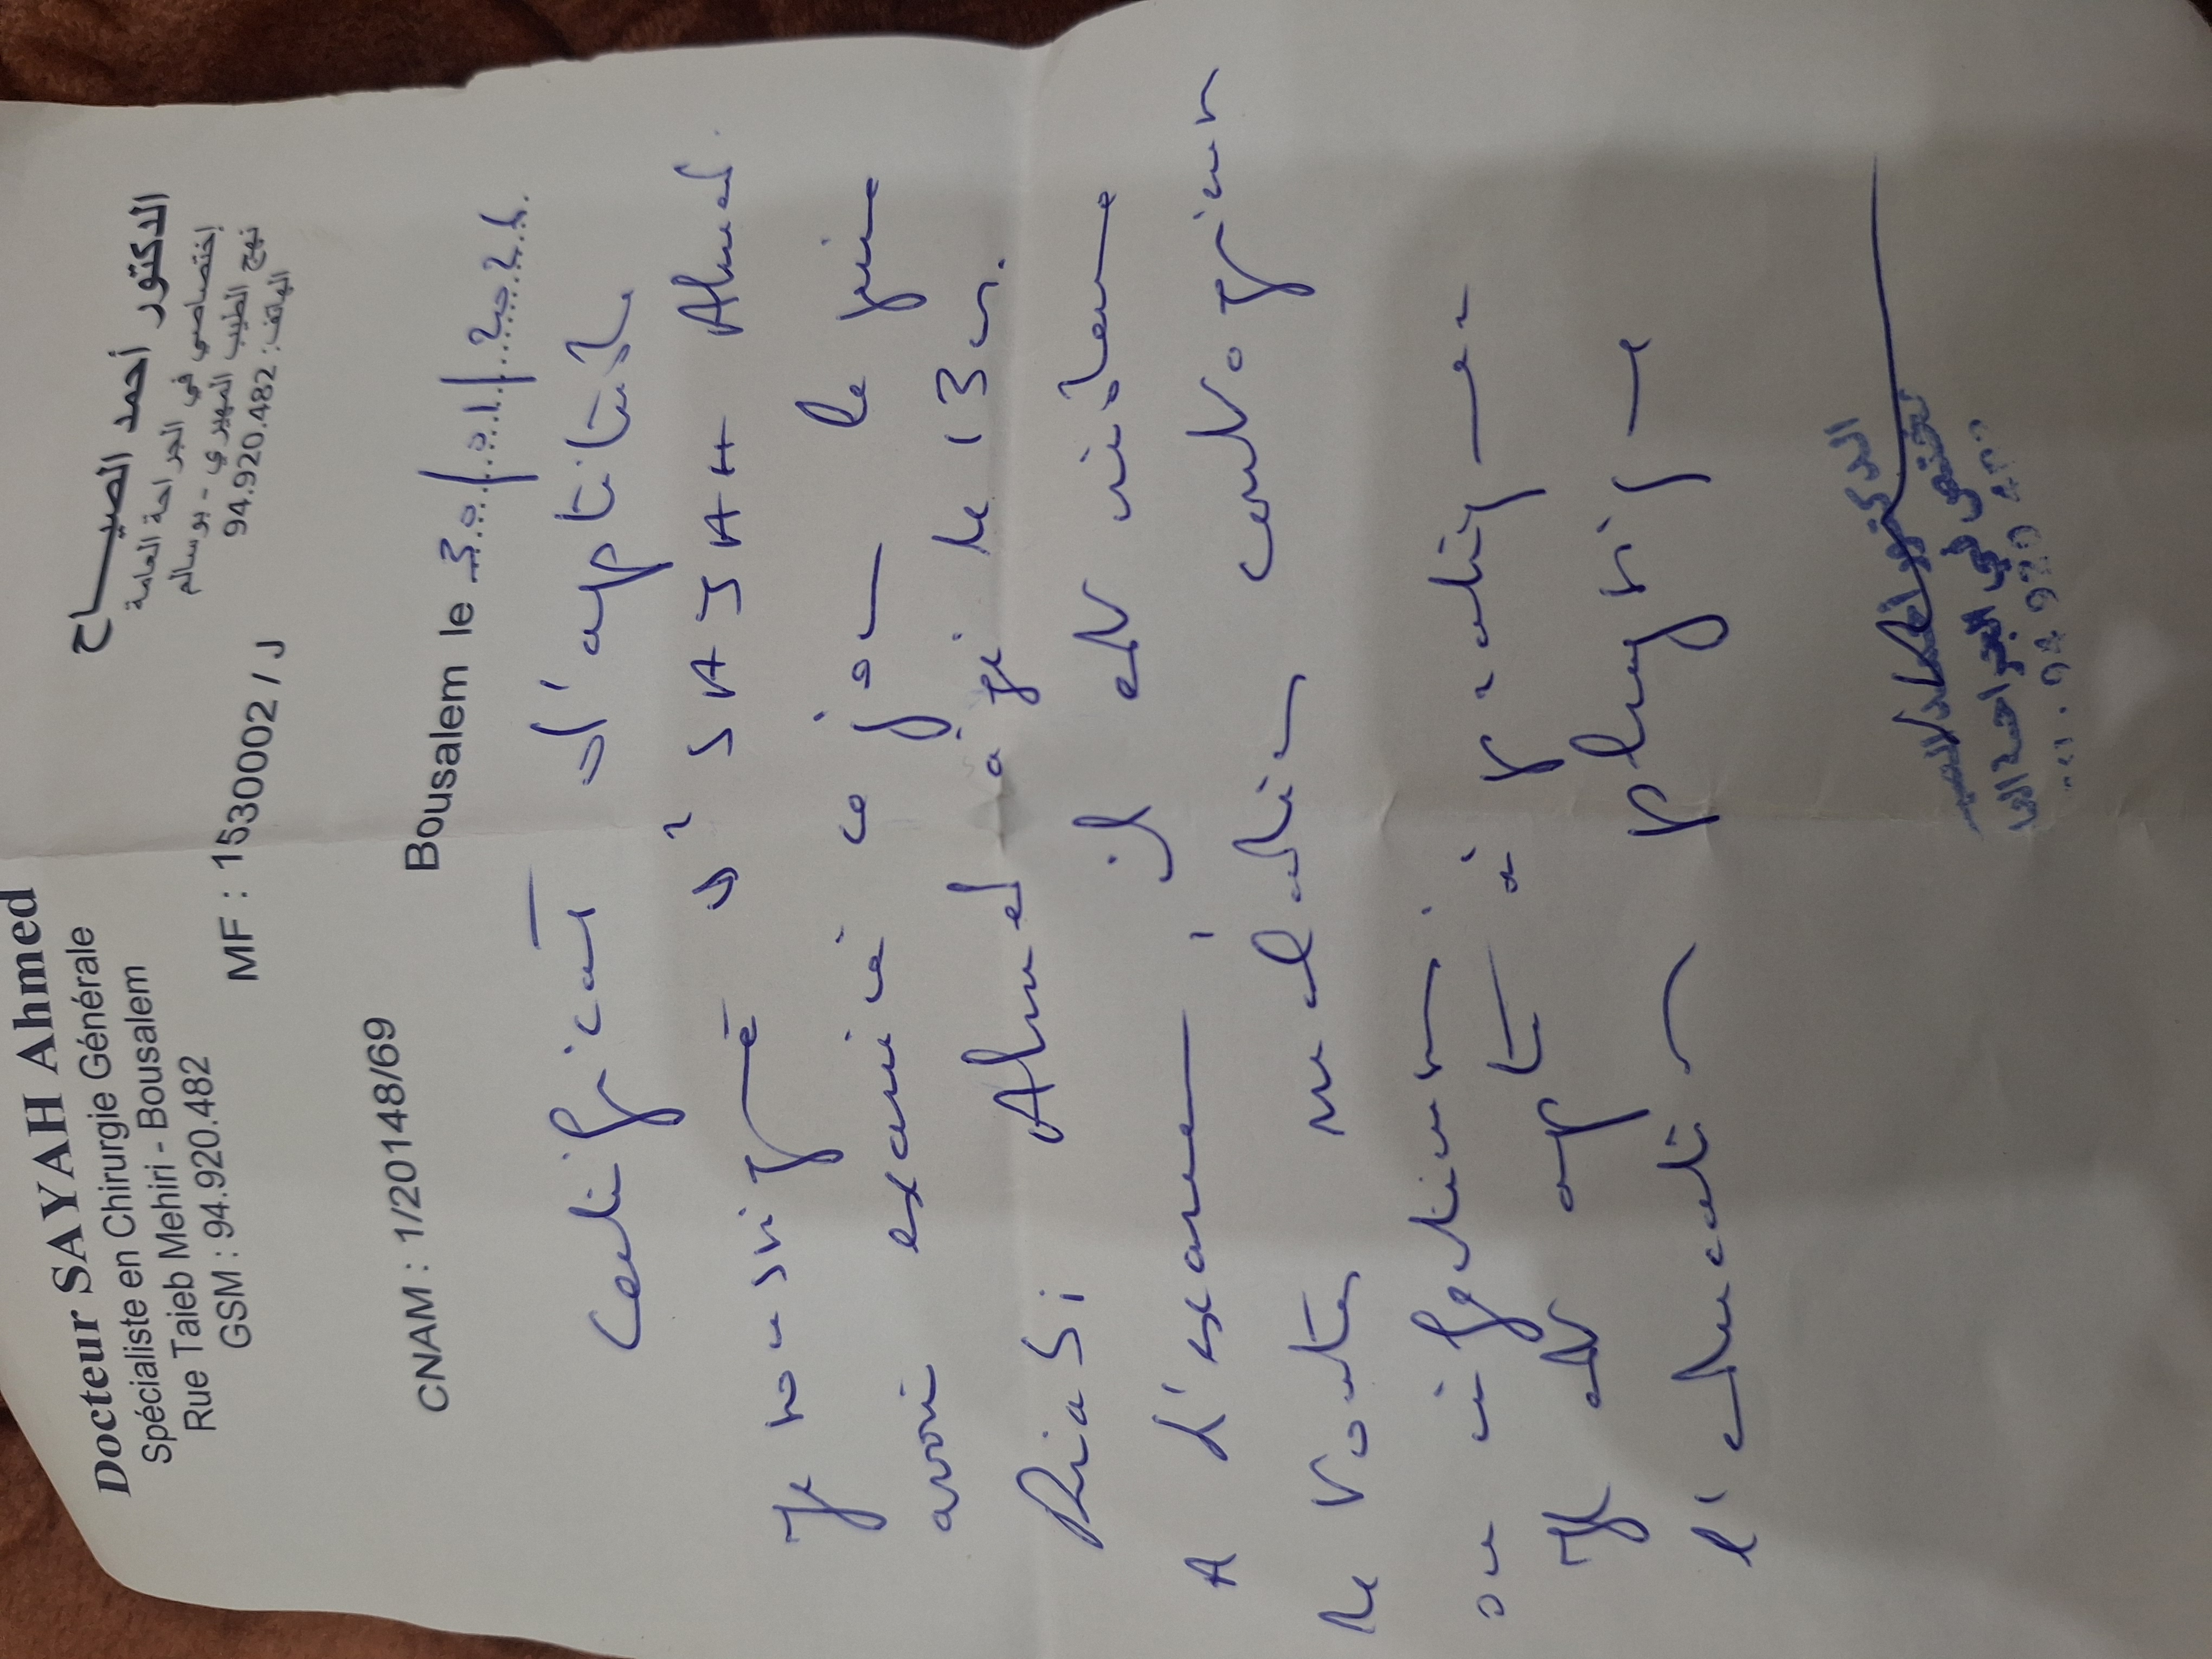 Docteur SAYAH Ahmed
Spécialiste en Chirurgie Générale
Rue Taieb Mehiri - Bousalem
GSM : 94.920.482
الدكتور أحمد الصيـــاح
إختصاصي في الجراحة العامة
نهج الطيب المهيري - بوسالم
الهاتف: 94.920.482
MF : 1530002 / J
CNAM : 1/20148/69
Bousalem le 30/01/202
Certificat d'aptitude
Je soussigné Dr SAYAH Ahmed
avoir examiné ce jour le jeune
Ahmed âgé de 13 ans.
A l'examen il est indemne
de toutes maladies contagieuses
ou infectieuses.
Il est apte à pratiquer
l'éducation physique
الدكتور أحمد الصياح
مختص في الجراحة العا
94 920 482